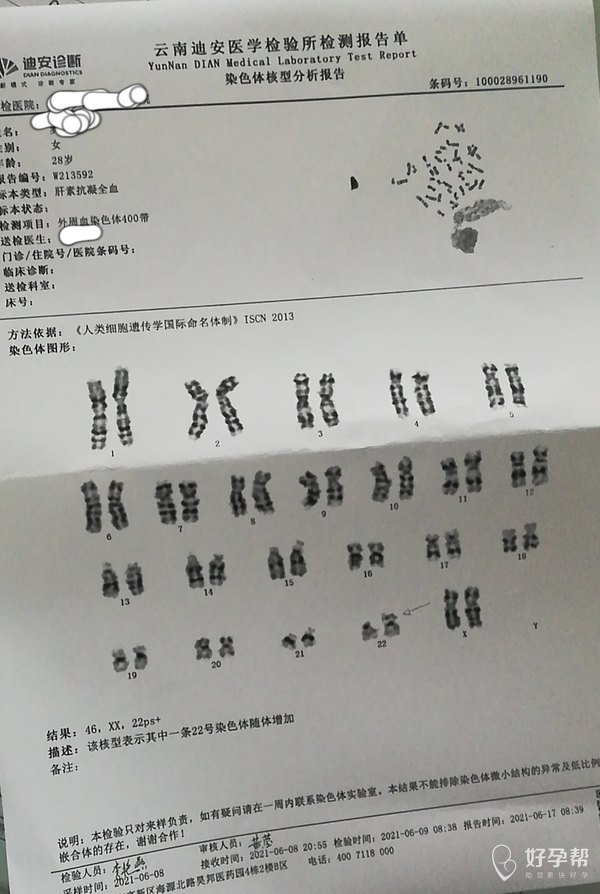 迪安诊断
DIAN DIAGNOSTICS
云南迪安医学检验所检测报告单
YunNan DIAN Medical Laboratory Test Report
染色体核型分析报告
条码号：100028961190
检医院：
性别： 女
年龄： 28岁
报告编号：W213592
标本类型：肝素抗凝全血
标本状态：
检测项目：外周血染色体400带
送检医生：
门诊/住院号/医院条码号：
临床诊断：
送检科室：
床号：
方法依据：《人类细胞遗传学国际命名体制》ISCN 2013
染色体图形：
1 2 3 4 5
6 7 8 9 10 11 12
13 14 15 16 17 18
19 20 21 22 X Y
结果：46，XX，22ps+
描述：该核型表示其中一条22号染色体随体增加
备注：
说明：本检验只对来样负责，如有疑问请在一周内联系染色体实验室。本结果不能排除染色体微小结构的异常及低比例
嵌合体的存在，谢谢合作！
检验人员： 审核人员：
采样时间：2021-06-08 接收时间：2021-06-08 20:55 检验时间：2021-06-09 08:38 报告时间：2021-06-17 08:39
高新区海源北路昊邦医药园4栋2楼B区 电话：400 7118 000
好孕帮
助您更快好孕